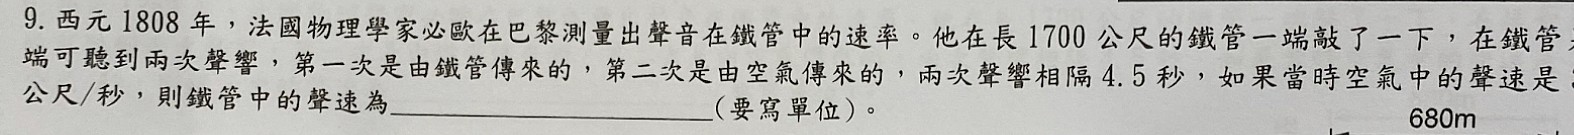 9. 西元 1808 年，法國物理學家必歐在巴黎測量出聲音在鐵管中的速率。他在長 1700 公尺的鐵管一端敲了一下，在鐵管
端可聽到兩次聲響，第一次是由鐵管傳來的，第二次是由空氣傳來的，兩次聲響相隔 4.5 秒，如果當時空氣中的聲速是
公尺/秒，則鐵管中的聲速為____________________(要寫單位)。
680m